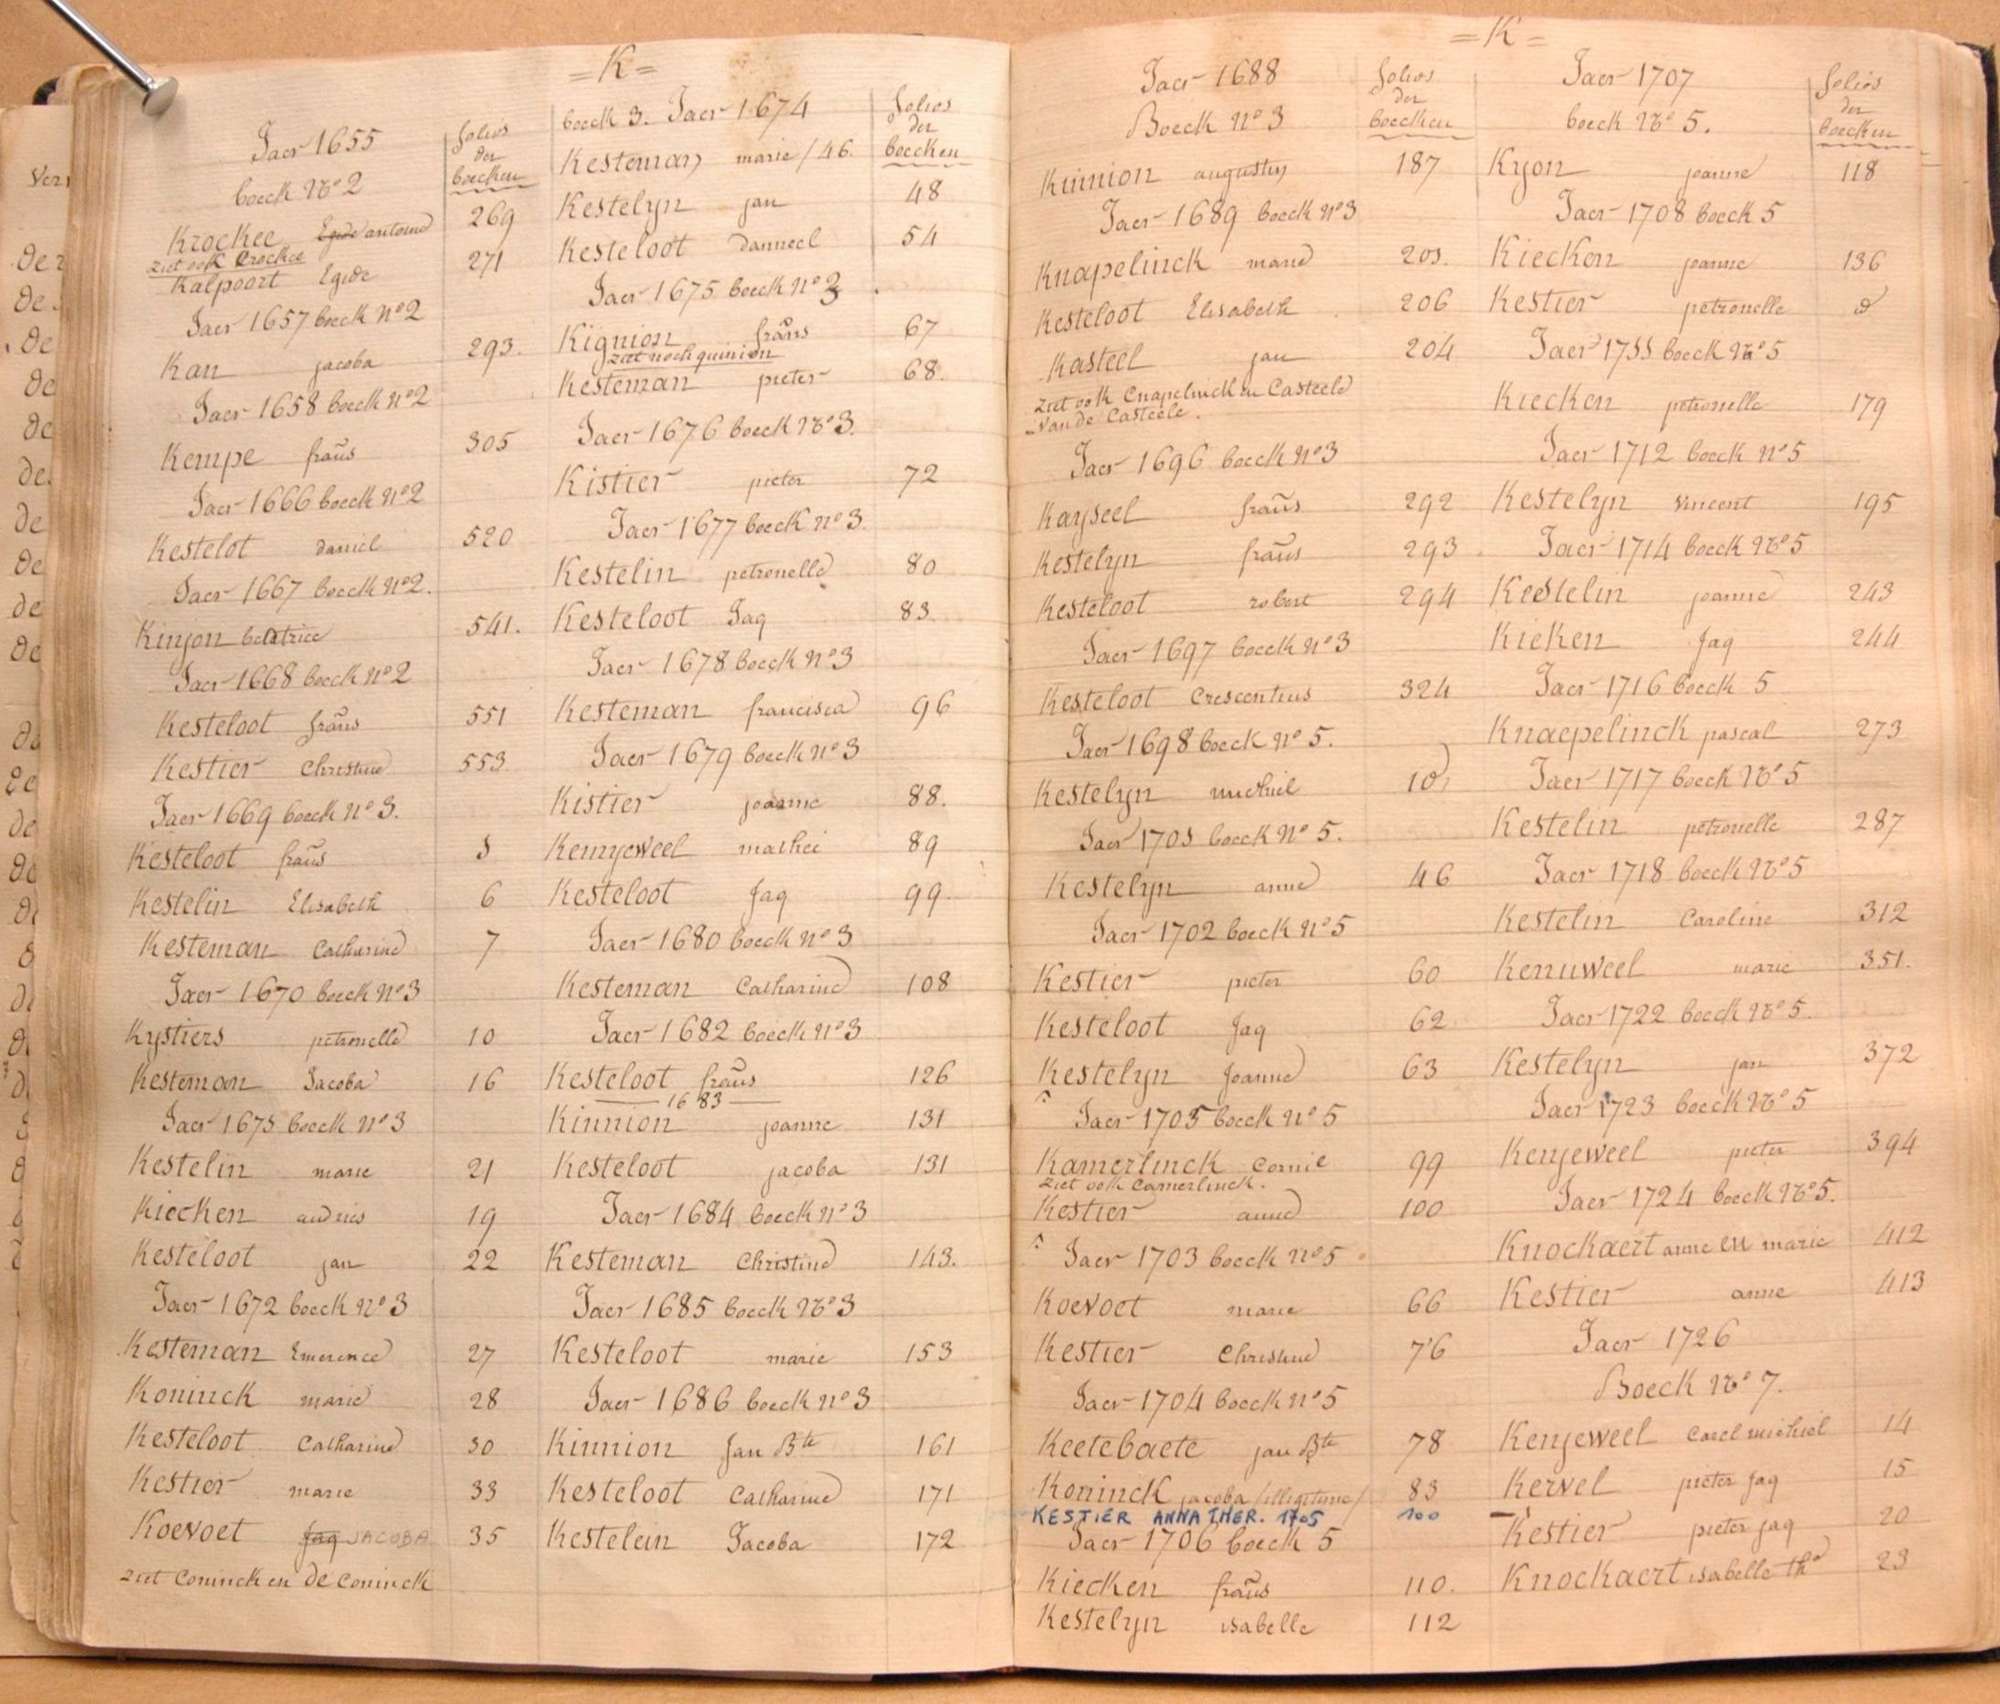 = K =
Jaer 1655
folios der boecken
boeck No 2
Krockee Egide antoine 269
ziet ook Crockee
Kalpoort Egide 271
Jaer 1657 boeck No 2
Kan jacoba 293.
Jaer 1658 boeck No 2
Kempe frañs 305
Jaer 1666 boeck No 2
Kestelot daniel 520
Jaer 1667 boeck No 2.
Kinjon beatrice 541.
Jaer 1668 boeck No 2
Kesteloot frañs 551
Kestier Christine 553
Jaer 1669 boeck No 3.
Kesteloot frañs 5
Kestelin Elisabeth 6
Kesteman Catharine 7
Jaer 1670 boeck No 3
Kystiers petronelle 10
Kesteman Jacoba 16
Jaer 1675 boeck No 3
Kestelin marie 21
Kiecken andries 19
Kesteloot jan 22
Jaer 1672 boeck No 3
Kesteman Emerence 27
Koninck marie 28
Kesteloot Catharine 30
Kestier marie 33
Koevoet Jaq JACOBA 35
ziet Coninck en De Coninck
boeck 3. Jaer 1674
folios der boecken
Kesteman marie / 46.
Kestelyn jan 48
Kesteloot danneel 54
Jaer 1675 boeck No 3
Kignion frañs 67
ziet noch quinion
Kesteman pieter 68.
Jaer 1676 boeck No 3.
Kistier pieter 72
Jaer 1677 boeck No 3.
Kestelin petronelle 80
Kesteloot Jaq 83
Jaer 1678 boeck No 3
Kesteman francisca 96
Jaer 1679 boeck No 3
Kistier joanne 88.
Kemyeweel mathei 89
Kesteloot Jaq 99.
Jaer 1680 boeck No 3
Kesteman Catharine 108
Jaer 1682 boeck No 3
Kesteloot frañs 126
1683
Kinnion joanne 131
Kesteloot jacoba 131
Jaer 1684 boeck No 3
Kesteman Christine 143.
Jaer 1685 boeck No 3
Kesteloot marie 153
Jaer 1686 boeck No 3
Kinnion Jan Bte 161
Kesteloot Catharine 171
Kestelein Jacoba 172
= K =
Jaer 1688
folios der boecken
Boeck No 3
Kinnion augustin 187
Jaer 1689 boeck No 3
Knapelinck marie 205.
Kesteloot Elisabeth 206
Kasteel jan 204
ziet ook Cnapelinck en Casteele
Van de Casteele.
Jaer 1696 boeck No 3
Kayseel frañs 292
Kestelyn frañs 293
Kesteloot robert 294
Jaer 1697 boeck No 3
Kesteloot Crescentius 324
Jaer 1698 boeck No 5.
Kestelyn michiel 10
Jaer 1705 boeck No 5.
Kestelyn anne 46
Jaer 1702 boeck No 5
Kestier pieter 60
Kesteloot Jaq 62
Kestelyn Joanne 63
Jaer 1705 boeck No 5
Kamerlinck Cornil 99
ziet ook Camerlinck.
Kestier anne 100
Jaer 1703 boeck No 5
Koevoet marie 66
Kestier Christine 76
Jaer 1704 boeck No 5
Keetebaete jan Bte 78
Koninck jacoba /illigitime/ 83
KESTIER ANNA THER. 1705 100
Jaer 1706 boeck 5
Kiecken frañs 110.
Kestelyn isabelle 112
Jaer 1707
folios der boecken
boeck No 5.
Kyon joanne 118
Jaer 1708 boeck 5
Kiecken joanne 136
Kestier petronelle d
Jaer 1755 boeck No 5
Kiecken petronelle 179
Jaer 1712 boeck No 5
Kestelyn Vincent 195
Jaer 1714 boeck No 5
Kestelin joanne 243
Kieken Jaq 244
Jaer 1716 boeck 5
Knaepelinck pascal 273
Jaer 1717 boeck No 5
Kestelin petronelle 287
Jaer 1718 boeck No 5
Kestelin Caroline 312
Kenuweel marie 351.
Jaer 1722 boeck No 5.
Kestelyn jan 372
Jaer 1723 boeck No 5
Kenjeweel pieter 394
Jaer 1724 boeck No 5.
Knockaert anne en marie 412
Kestier anne 413
Jaer 1726
Boeck No 7.
Kenjeweel Carel michiel 14
Kervel pieter Jaq 15
Kestier pieter jaq 20
Knockaert isabelle The 23